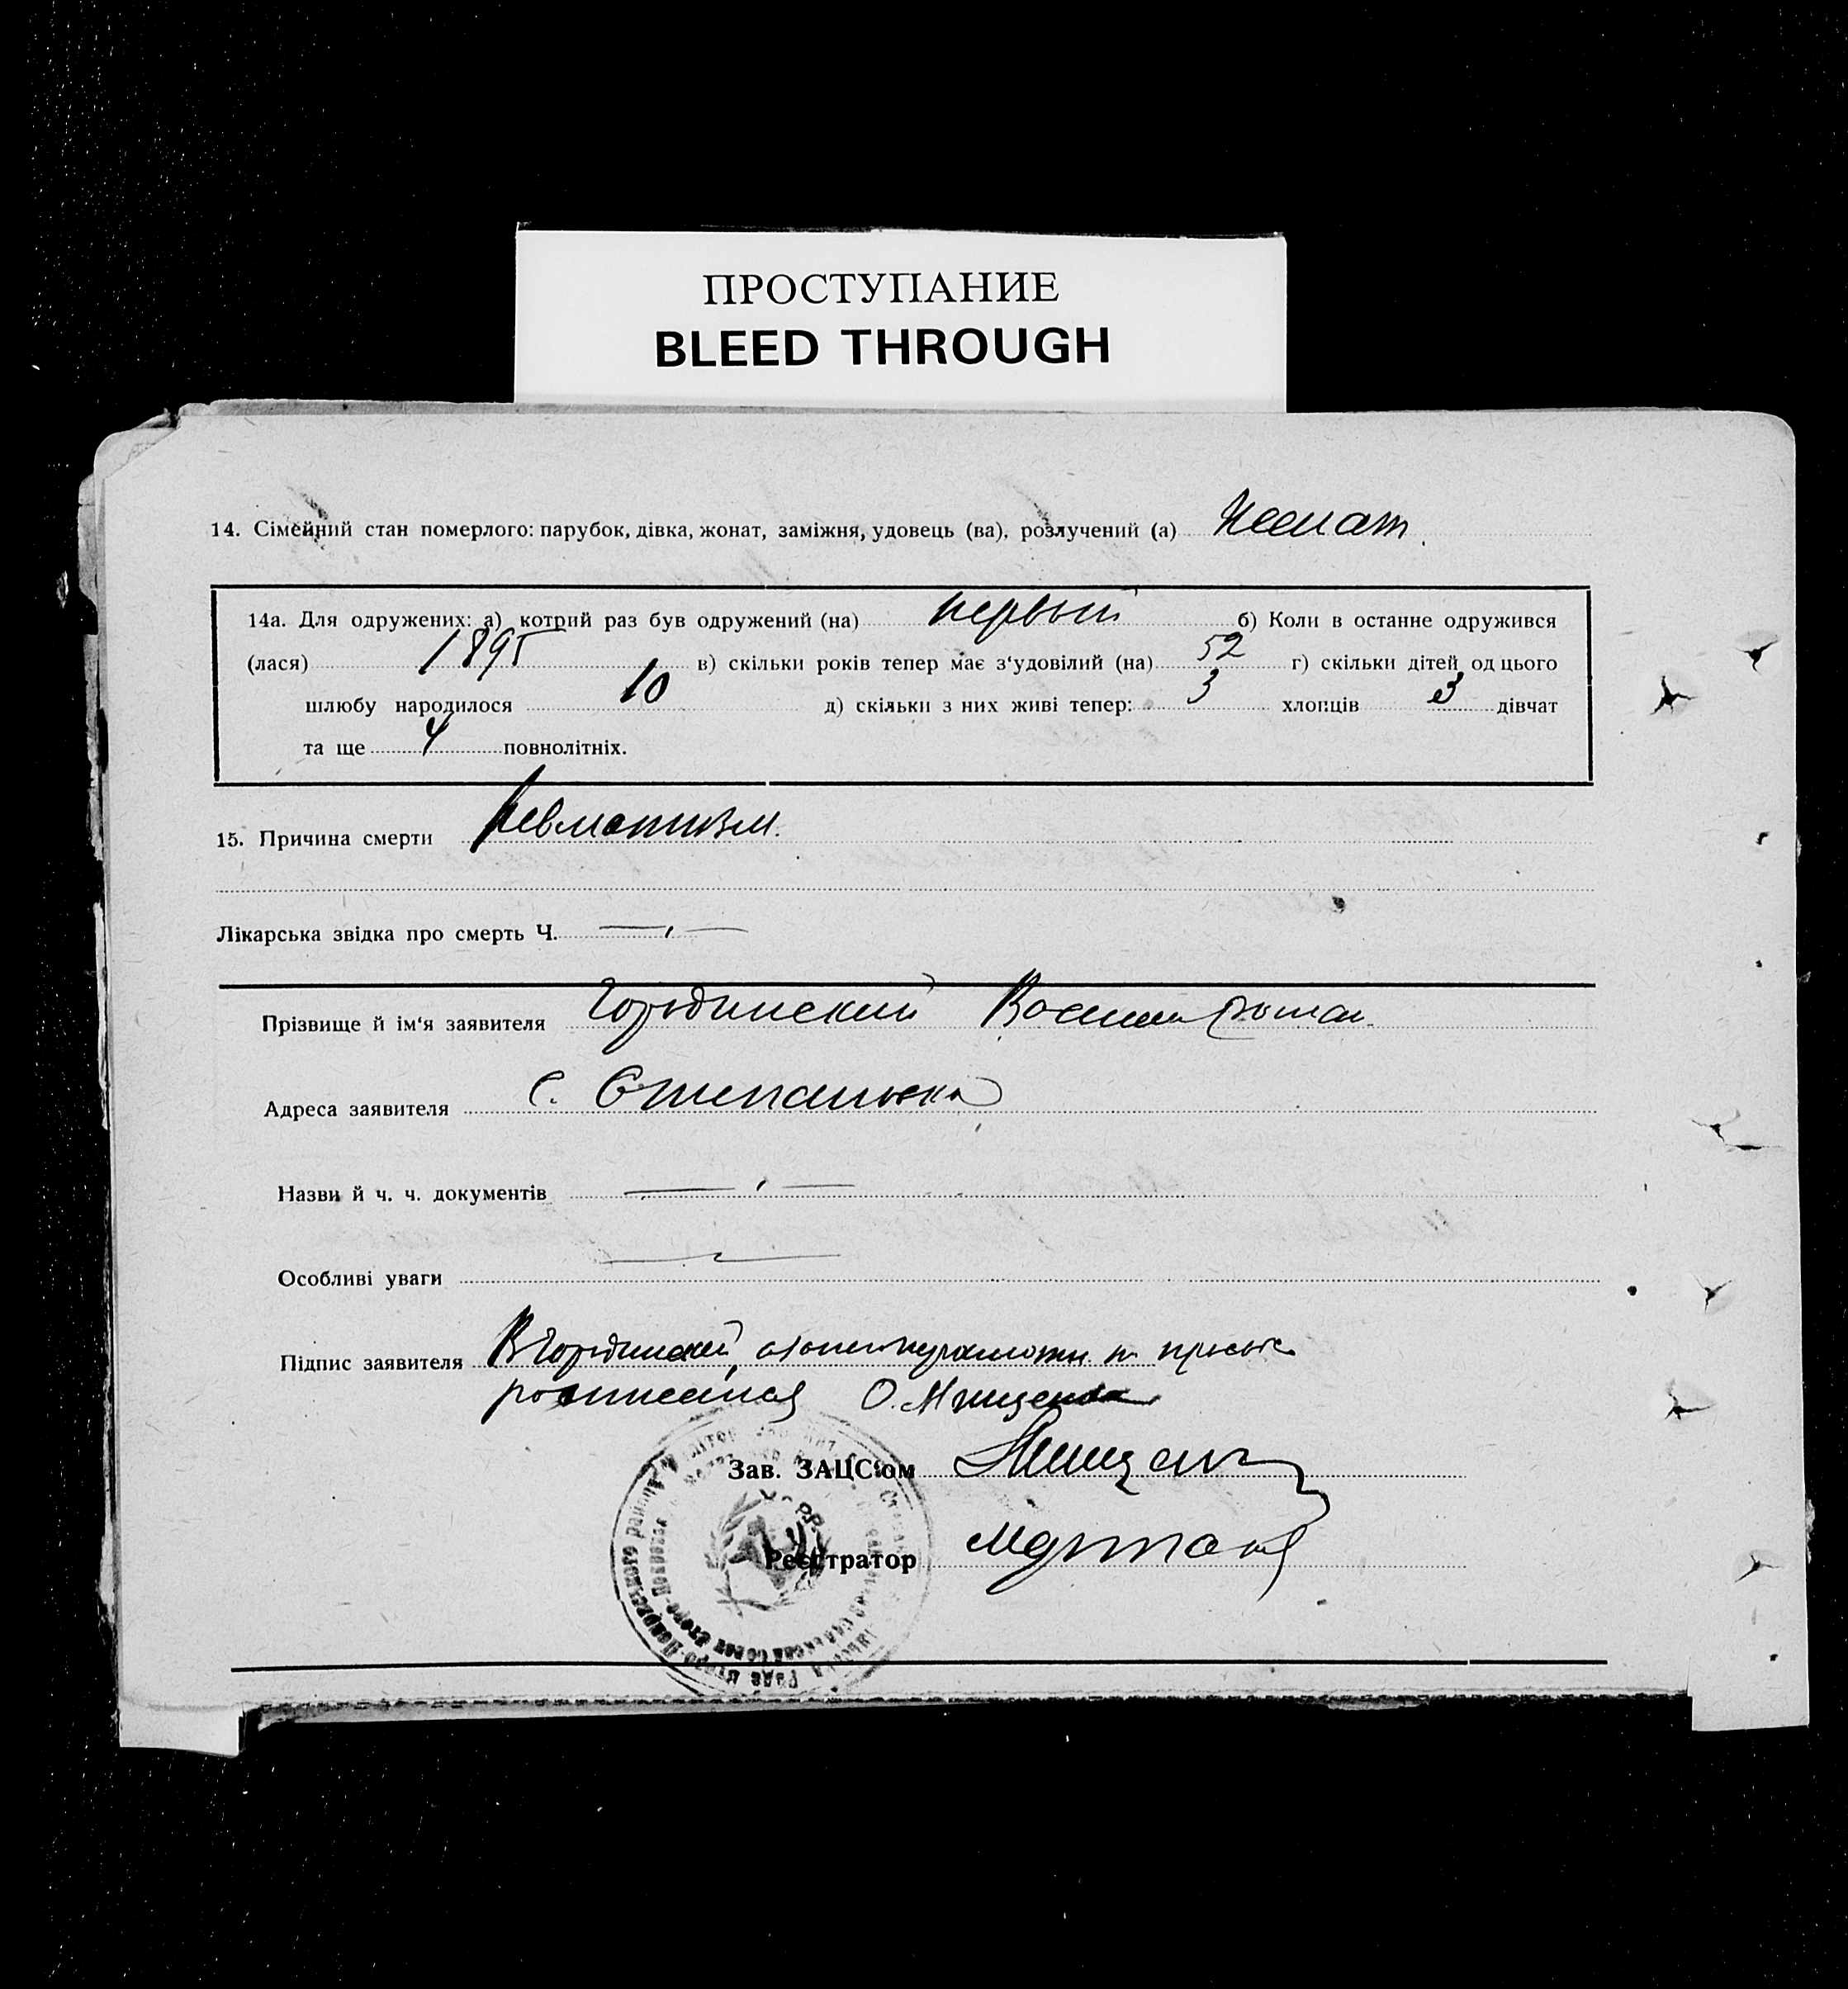 ПРОСТУПАНИЕ
BLEED THROUGH
14. Сімейний стан померлого: парубок, дівка, жонат, заміжня, удовець (ва), розлучений (а) Женат.
14а. Для одружених: а) котрий раз був одружений (на) первый б) Коли в останне одружився
(лася) 1895 в) скільки років тепер має з'удовілий (на) 52 г) скільки дітей од цього
шлюбу народилося 10 д) скільки з них живі тепер: 3 хлопців 3 дівчат
та ще 4 повнолітніх.
15. Причина смерти Ревматизм.
Лікарська звідка про смерть Ч. —,—
Прізвище й ім'я заявителя Городинский
Адреса заявителя с. Степановка
Назви й ч. ч. документів —,—
Особливі уваги
Підпис заявителя В Городинский,
О. Мищенко
Зав. ЗАЦС'ом
Реєстратор